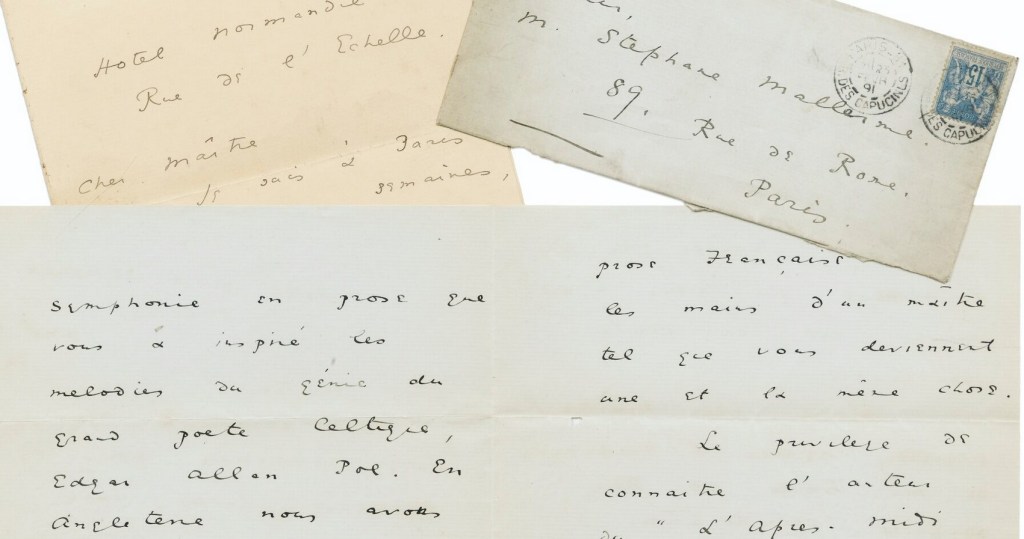 Hotel Normandie
Rue de l'Echelle.
Cher Maître
Je suis à Paris
semaines,
M. Stephane Mallarmé.
89, Rue de Rome.
Paris.
91
DES CAPUCINES
15
DES CAPUCINES
symphonie en prose que
vous a inspiré les
melodies du génie du
grand poete Celtique,
Edgar Allan Poe. En
Angleterre nous avons
prose Française
les mains d'un maître
tel que vous deviennent
une et la même chose.
Le privilege de
connaitre l'auteur
du "L'Apres-midi